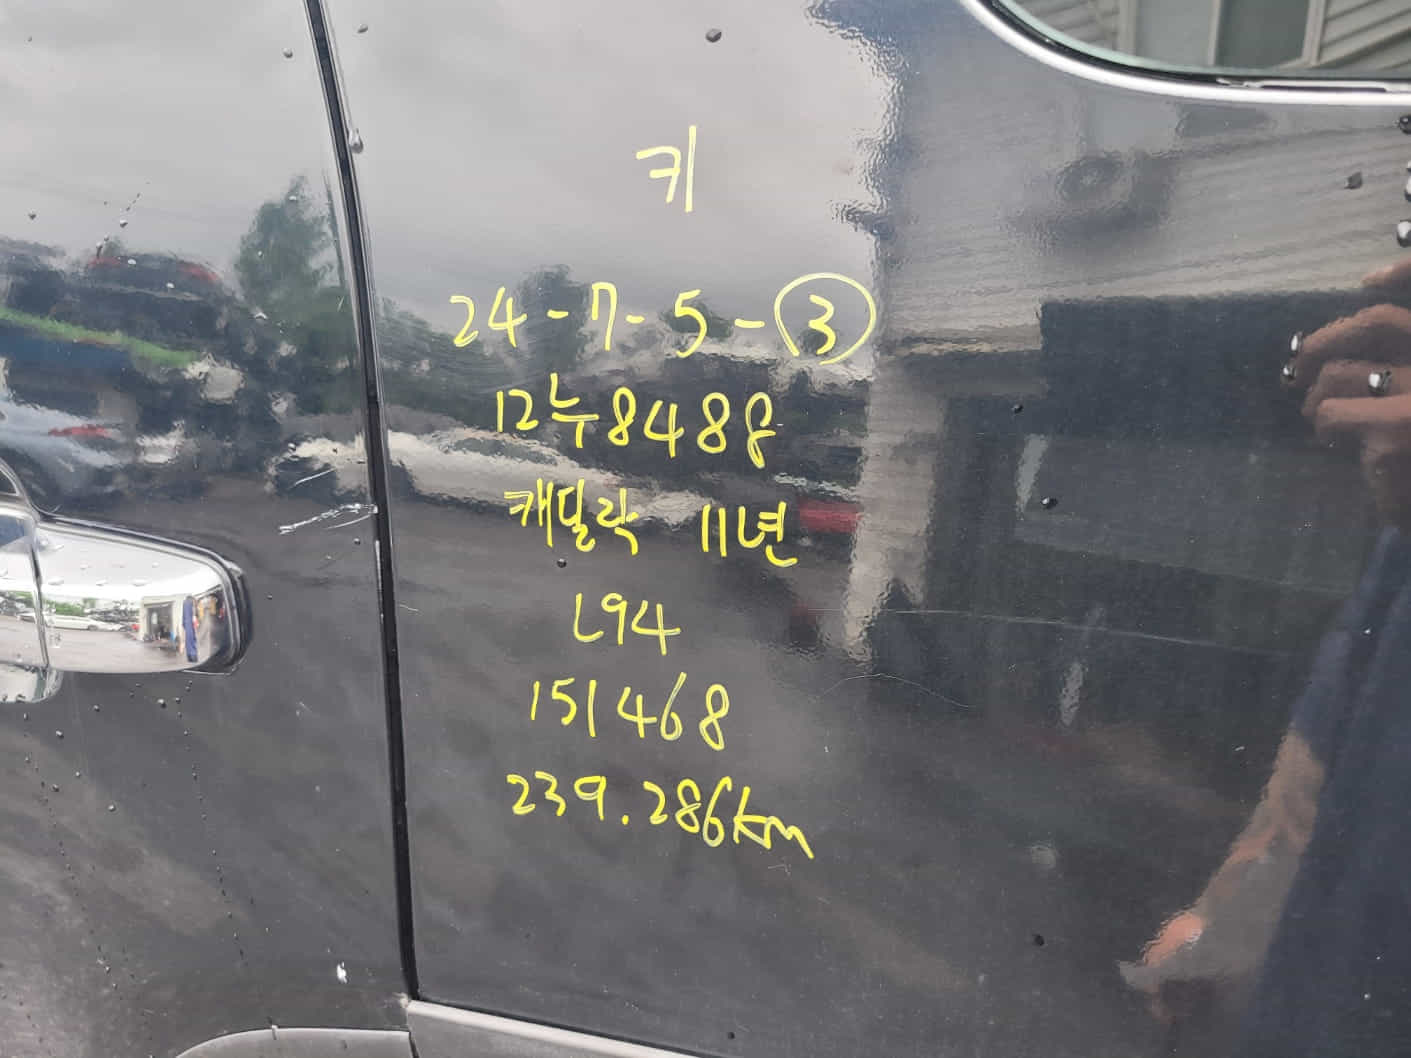 키
24-7-5-③
12누8488
캐딜락 11년
L94
151468
239.286km